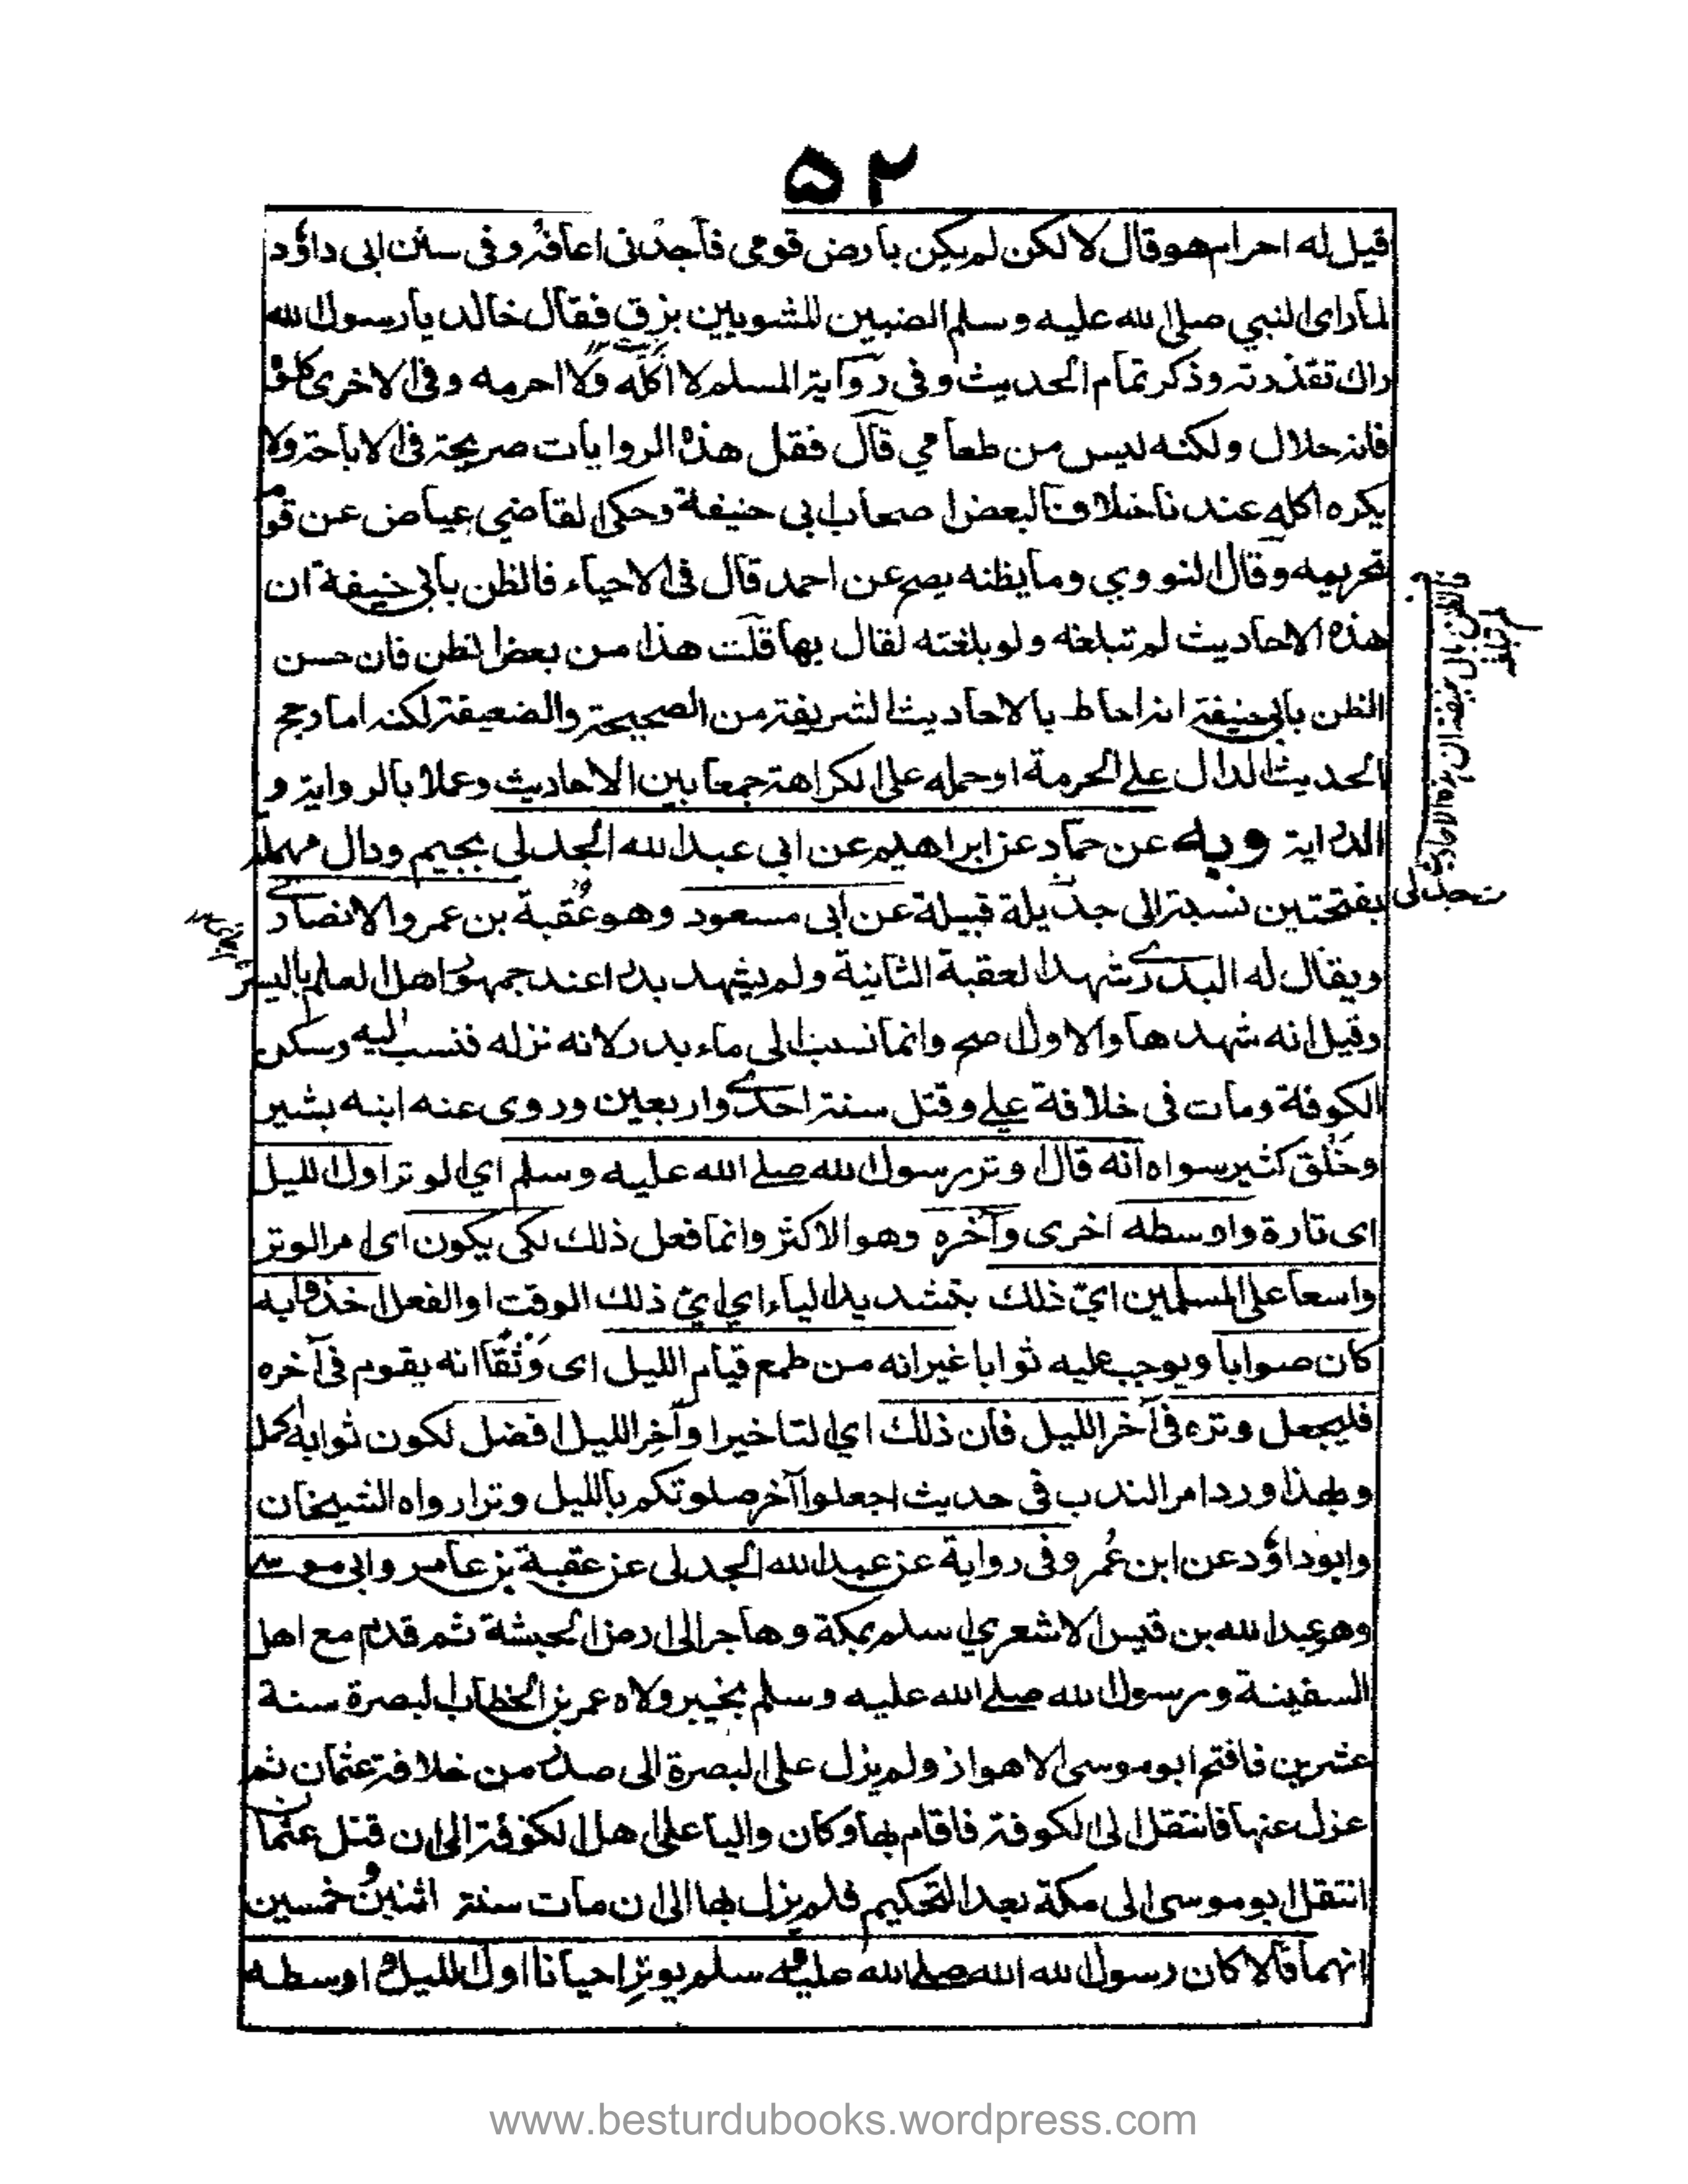 ۵۲
قيل له احرام هو قال لا لكن لم يكن بارض قومي فاجدني اعافه وفي سنن ابي داؤد
لما راى النبي صلى الله عليه وسلم الضبين المشويين بزق فقال خالد يا رسول الله
راك تقذرته وذكر تمام الحديث وفي رواية المسلم لا اٰكله ولا احرمه وفي الاخرى كلوا
فانه حلال ولكنه ليس من طعامي قال فقل هذه الروايات صريحة في الاباحة ولا
يكره اكله عندنا خلافا لبعض اصحاب ابي حنيفة وحكى القاضي عياض عن قوم
تحريمه وقال النووي وما يظنه يصح عن احمد قال في الاحياء فالظن بابي حنيفة ان
هذه الاحاديث لم تبلغه ولو بلغته لقال بها قلت هذا من بعض الظن فان حسن
الظن بابي حنيفة انه احاط بالاحاديث الشريفة من الصحيحة والضعيفة لكنه اما رجح
الحديث الدال على الحرمة او حمله على الكراهة جمعا بين الاحاديث وعملا بالرواية و
الدراية وبه عن حماد عن ابراهيم عن ابي عبد الله الجدلي بجيم ودال مهملة
بفتحتين نسبة الى جديلة قبيلة عن ابي مسعود وهو عُقبة بن عمرو الانصاري
ويقال له البدري شهد العقبة الثانية ولم يشهد بدرا عند جمهور اهل العلم بالسير
وقيل انه شهدها والاول اصح وانما نسب الى ماء بدر لانه نزله فنسب اليه وسكن
الكوفة ومات في خلافة علي وقتل سنة احدى واربعين وروى عنه ابنه بشير
وخَلْق كثير سواه انه قال وتر رسول الله صلى الله عليه وسلم اي الوتر اول الليل
اى تارة واوسطه اخرى وآخره وهو الاكثر وانما فعل ذلك لكي يكون اى امر الوتر
واسعا على المسلمين اىّ ذلك بتشديد الياء اي اىّ ذلك الوقت او الفعل اخذوا به
كان صوابا ويوجب عليه ثوابا غير انه من طمع قيام الليل اى وَثُقًا انه يقوم في آخره
فليجعل وتره في آخر الليل فان ذلك اي التاخير او آخر الليل افضل لكون ثوابه اكمل
ولهذا ورد امر الندب في حديث اجعلوا آخر صلوتكم بالليل وترا رواه الشيخان
وابو داؤد عن ابن عُمر وفي رواية عن عبد الله الجدلي عن عقبة بن عامر وابي موسى
وهو عبد الله بن قيس الاشعري اسلم بمكة وهاجر الى ارض الحبشة ثم قدم مع اهل
السفينة ورسول الله صلى الله عليه وسلم بخيبر ولاه عمر بن الخطاب البصرة سنة
عشرين فافتح ابو موسى الاهواز ولم يزل على البصرة الى صدر من خلافة عثمان ثم
عزل عنها فانتقل الى الكوفة فاقام بها وكان واليا على اهل الكوفة الى ان قتل عثمان
انتقل ابو موسى الى مكة بعد التحكيم فلم يزل بها الى ان مات سنة اثنين وخمسين
انهما قالا كان رسول الله الله صلى الله عليه سلم يوتر احيانا اول الليل واوسطه
جدلي
www.besturdubooks.wordpress.com